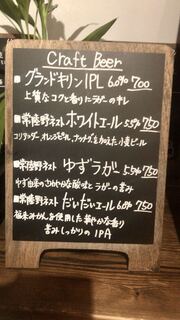 Craft Beer
■グランドキリン IPL 6.0% 700
上質なコクと香りにラガーのキレ
■常陸野ネスト ホワイトエール 5.5% 750
コリアンダー,オレンジピール,ナツメグを加えた小麦ビール
■常陸野ネスト ゆずラガー 5.5% 750
ゆず由来のさわやかな酸味とラガーの苦み
■常陸野ネスト だいだいエール 6.0% 750
福来みかんを使用した華やかな香り
苦みしっかりの IPA